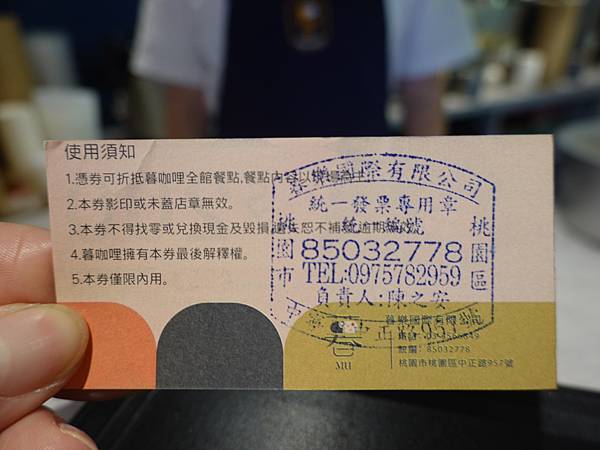 使用須知
1.憑券可折抵暮咖哩全館餐點,餐點內容以現場為主。
2.本券影印或未蓋店章無效。
3.本券不得找零或兌換現金及毀損,遺失恕不補發,逾期無效。
4.暮咖哩擁有本券最後解釋權。
5.本券僅限內用。
暮樂國際有限公司
統一發票專用章
統一編號
85032778
TEL:0975782959
負責人:陳之安
桃園市
桃園區
中正路957號
MU
暮樂國際有限公司
統編: 85032778
桃園市桃園區中正路957號